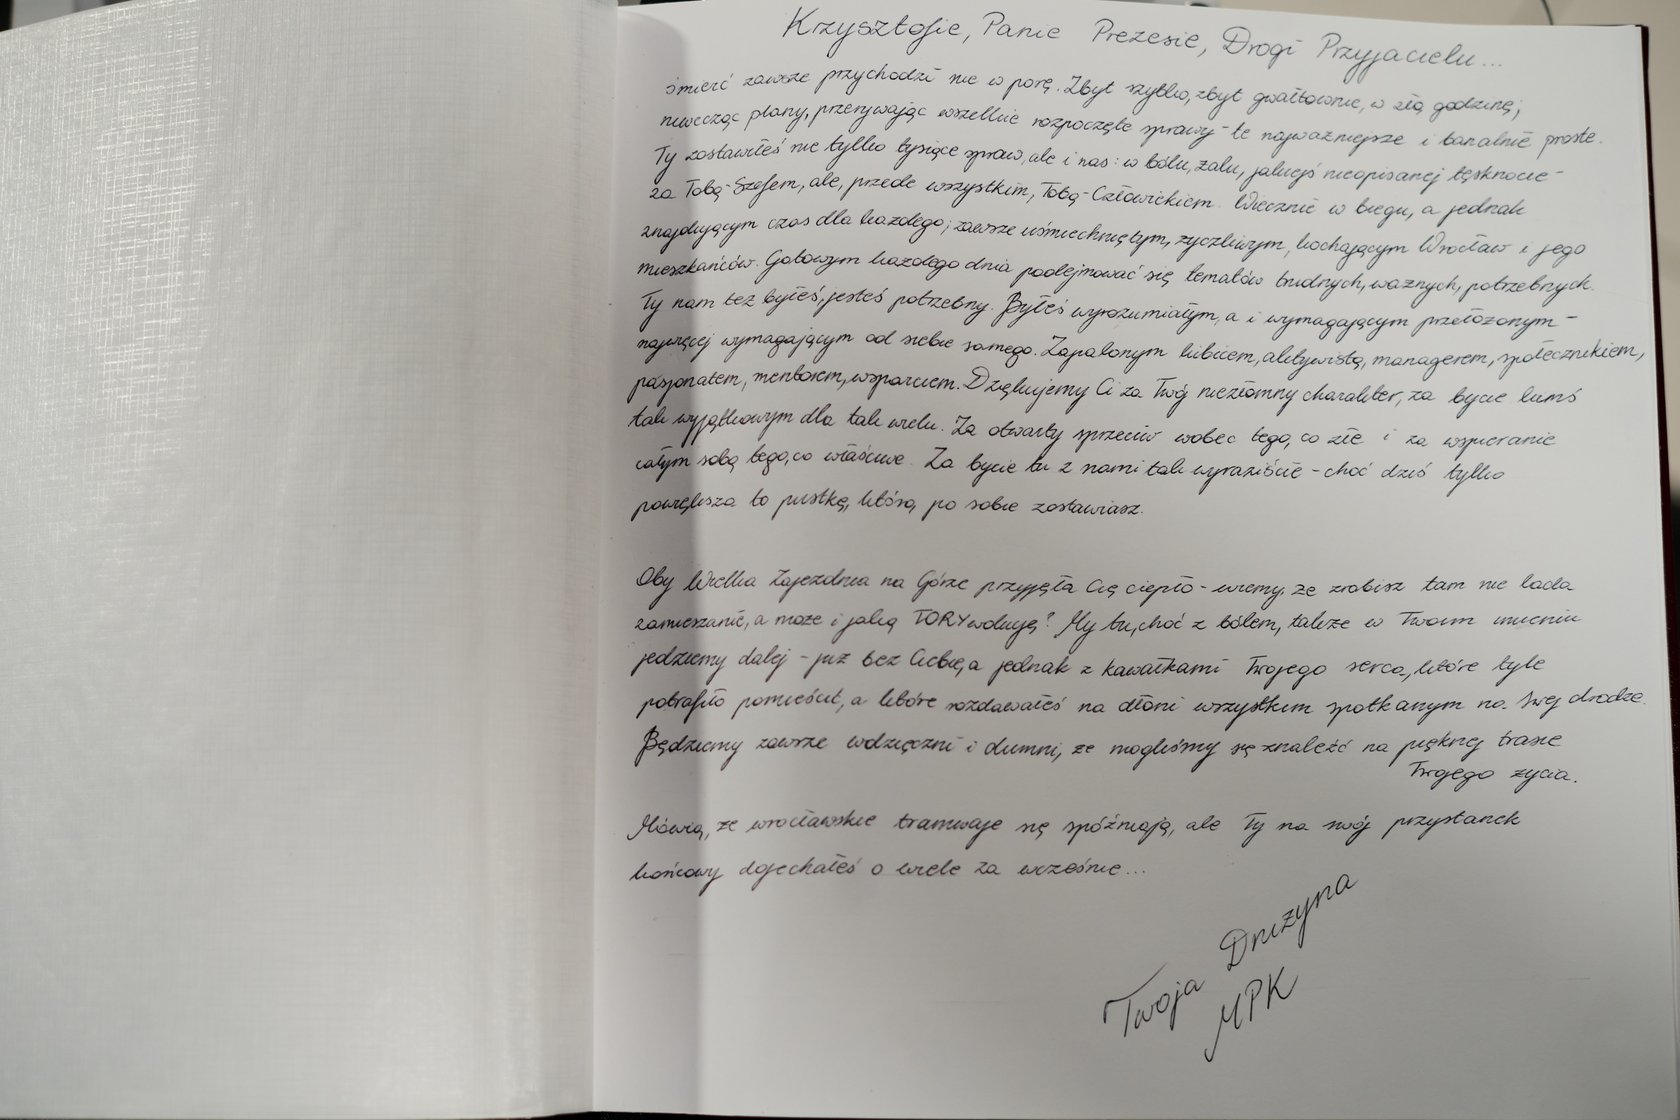 Krzysztofie, Panie Prezesie, Drogi Przyjacielu...
śmierć zawsze przychodzi nie w porę. Zbyt szybko, zbyt gwałtownie, w złą godzinę;
niwecząc plany, przerywając wszelkie rozpoczęte sprawy - te najważniejsze i banalnie proste.
Ty zostawiłeś nie tylko tysiące spraw, ale i nas: w bólu, żalu, jakiejś nieopisanej tęsknocie -
za Tobą - Szefem, ale, przede wszystkim, Tobą - Człowiekiem. Wiecznie w biegu, a jednak
znajdującym czas dla każdego; zawsze uśmiechniętym, życzliwym, kochającym Wrocław i jego
mieszkańców. Gotowym każdego dnia podejmować się tematów trudnych, ważnych, potrzebnych.
Ty nam też byłeś, jesteś potrzebny. Byłeś wyrozumiałym, a i wymagającym przełożonym -
najwięcej wymagającym od siebie samego. Zapalonym kibicem, aktywistą, managerem, społecznikiem,
pasjonatem, mentorem, wsparciem. Dziękujemy Ci za Twój niezłomny charakter, za bycie kimś
tak wyjątkowym dla tak wielu. Za otwarty sprzeciw wobec tego, co złe i za wspieranie
całym sobą tego, co właściwe. Za bycie tu z nami tak wyraziście - choć dziś tylko
powiększa to pustkę, którą po sobie zostawiasz.
Oby Wielka Zajezdnia na Górze przyjęła Cię ciepło - wiemy, że zrobisz tam nie lada
zamieszanie, a może i jakąś TORYwolucję? My tu, choć z bólem, także w Twoim imieniu
jedziemy dalej - już bez Ciebie, a jednak z kawałkami Twojego serca, które tyle
potrafiło pomieścić, a które rozdawałeś na dłoni wszystkim spotkanym na swej drodze.
Będziemy zawsze wdzięczni i dumni, że mogliśmy się znaleźć na pięknej trasie
Twojego życia.
Mówią, że wrocławskie tramwaje się spóźniają, ale Ty na swój przystanek
końcowy dojechałeś o wiele za wcześnie...
Twoja Drużyna
MPK